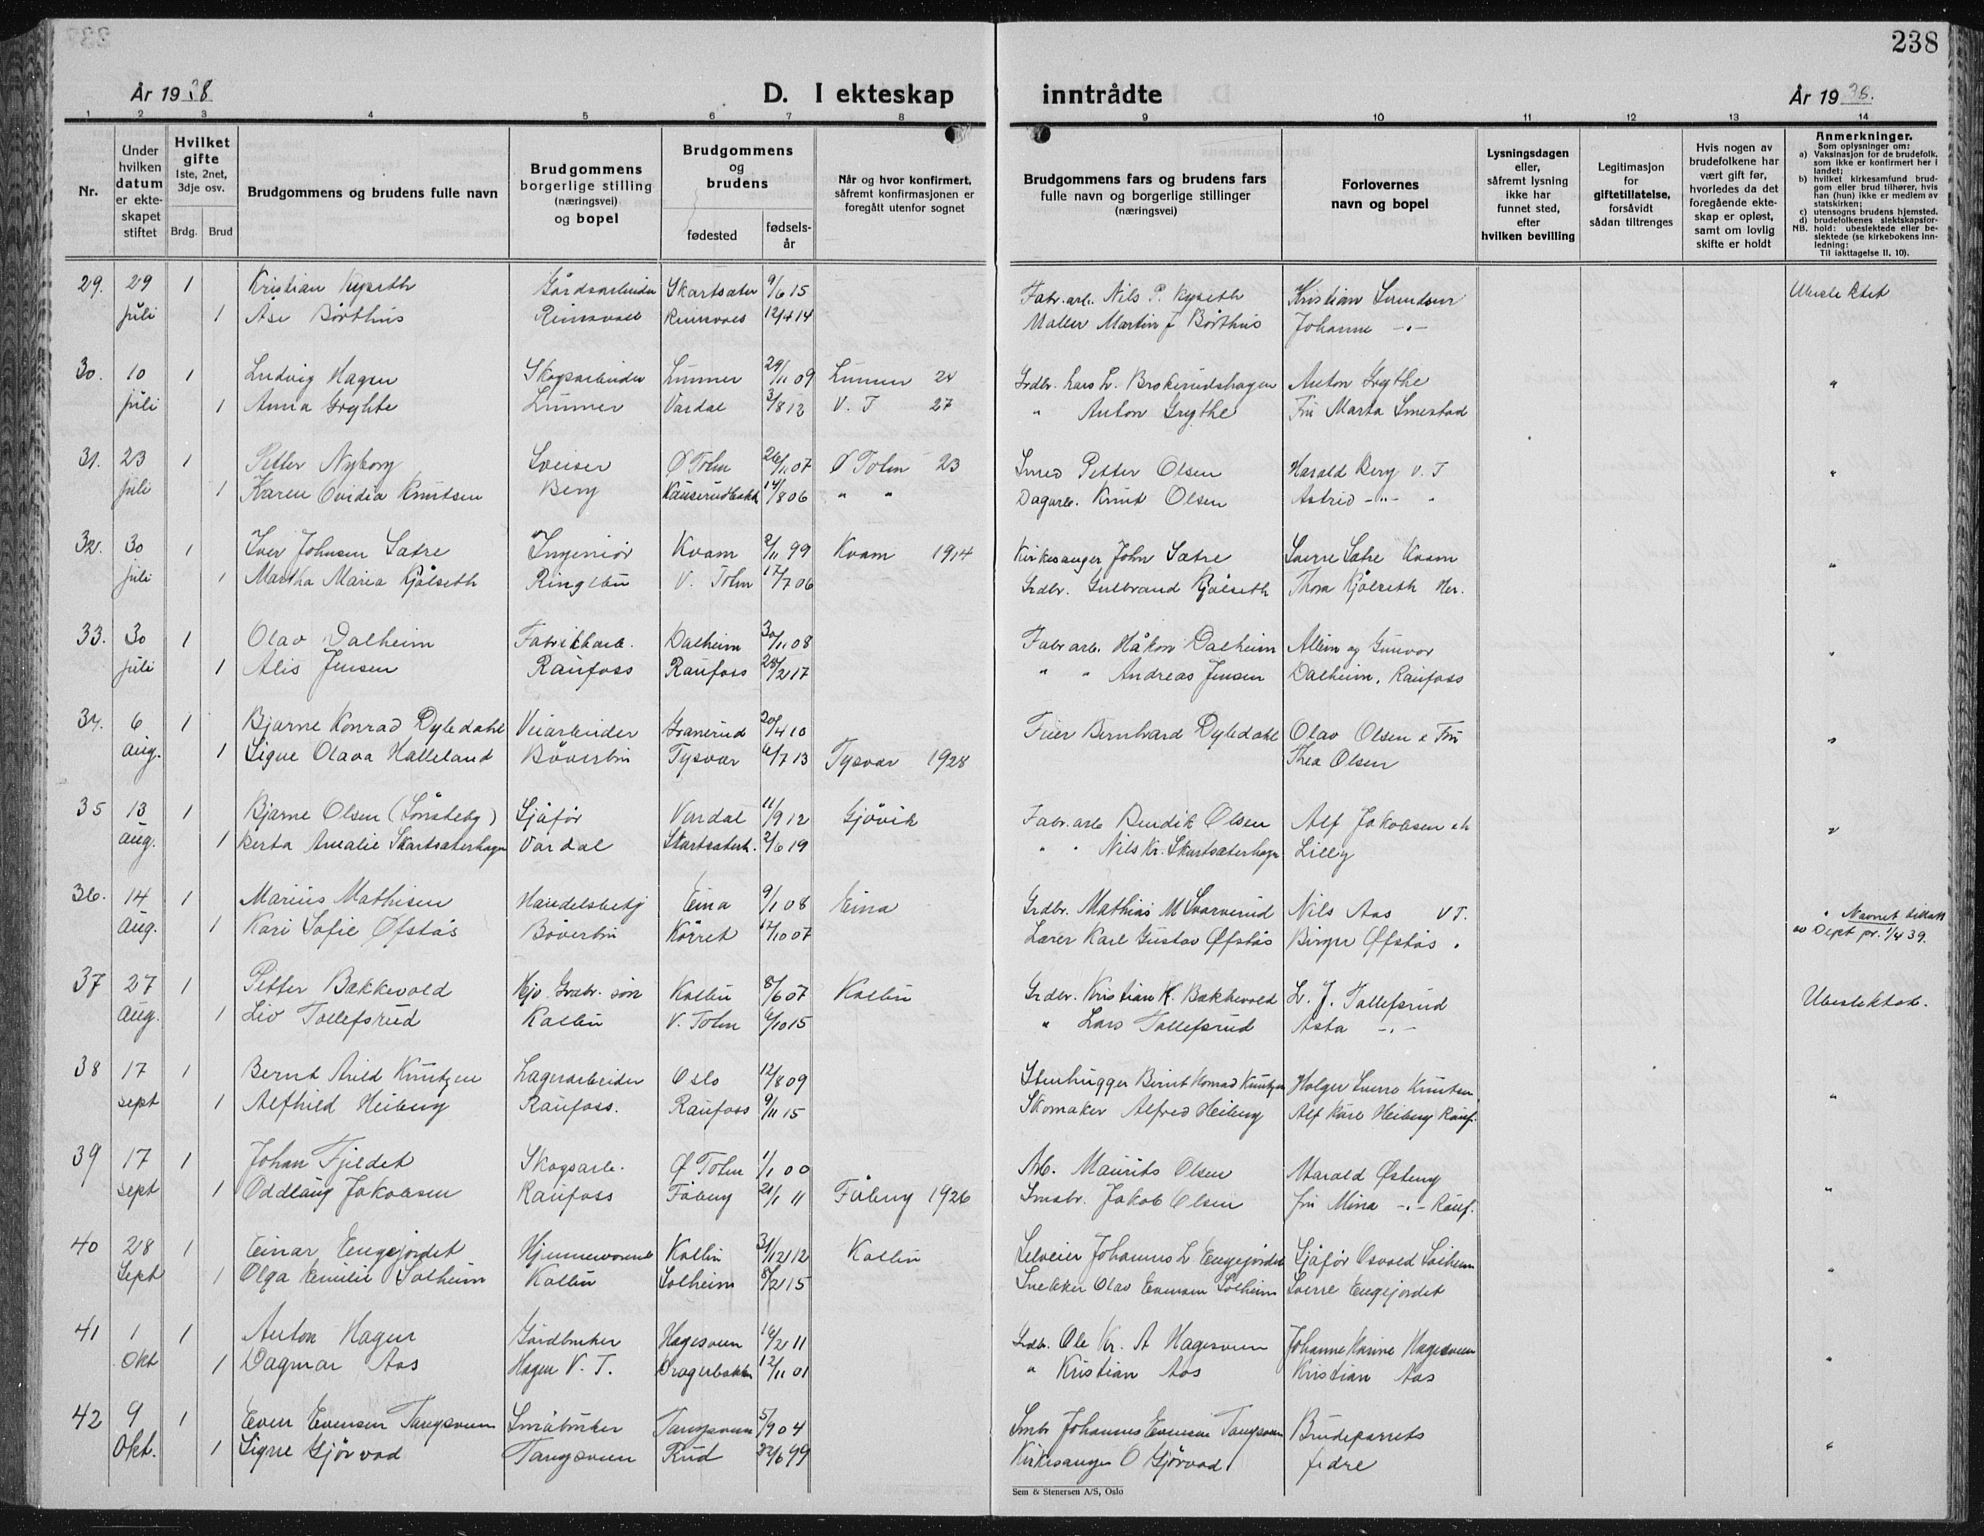 238
År 1938
D. I ekteskap
inntrådte
År 1938.
1 2 3 4 5 6 7 8 9 10 11 12 13 14
Nr.
Under hvilken datum er ekte-skapet stiftet
Hvilket gifte
1ste, 2net, 3dje osv.
Brdg. Brud
Brudgommens og brudens fulle navn
Brudgommens borgerlige stilling (næringsvei) og bopel
Brudgommens og brudens
fødested
fødsels-år
Når og hvor konfirmert, såfremt konfirmasjonen er foregått utenfor sognet
Brudgommens fars og brudens fars fulle navn og borgerlige stillinger (næringsvei)
Forlovernes navn og bopel
Lysningsdagen eller, såfremt lysning ikke har funnet sted, efter hvilken bevilling
Legitimasjon for giftetillatelse, forsåvidt sådan tiltrenges
Hvis nogen av brudefolkene har vært gift før, hvorledes da det foregående ekte-skap er opløst, samt om lovlig skifte er holdt
Anmerkninger.
Som oplysninger om:
a) Vaksinasjon for de brudefolk, som ikke er konfirmert her i landet;
b) hvilket kirkesamfund brud-gom eller brud tilhører, hvis han (hun) ikke er medlem av statskirken;
c) utensogns brudens hjemsted.
d) brudefolkenes slektskapsfor-
NB. hold: ubeslektede eller be-slektede (se kirkebokens inn-ledning:
Til iakttagelse II, 10).
29. 29 1 Kristian Kyseth Gårdsarbeider Skartsæter 9/6 15 Fabr.arb. Nils P. Kyseth Kristian Svendsen Ubeslektet
juli 1 Åse Børthus Reinsvoll Reinsvoll 12/4 14 Maller Martin J Børthus Johanne -"-
30. 10 1 Ludvig Hagen Skogsarbeider Lunner 29/11 09 Lunner 24 Grdbr. Lars L. Brokerudshagen Anton Grythe "
juli 1 Anna Grythe Lunner Vardal 3/8 12 V. T 27 " Anton Grythe Fru Marta Smestad
31. 23 1 Petter Nyborg Sveiser Ø Toten 26/11 07 Ø Toten 23 Smed Petter Olsen Harald Berg V. T "
juli 1 Karen Ovidia Knutsen Berg 14/8 06 " " Dagarb. Knut Olsen Astrid -"- "
32. 30 1 Iver Johnsen Sætre Ingeniør Kvam 2/11 99 Kvam 1914 Kirkesanger John Sætre Sverre Sætre Kvam "
juli 1 Martha Maria Kjølseth Ringebu V. Toten 17/7 06 Grdbr. Gulbrand Kjølseth Thora Kjølseth Her.
33. 30 1 Olav Dalheim Fabrikkarb. Dalheim 30/11 08 Fabr arb. Håkon Dalheim og Gunvor "
juli 1 Alis Jensen Raufoss Raufoss 28/2 17 " " Andreas Jensen Dalheim, Raufoss
34. 6 1 Bjarne Konrad Dyledahl Veiarbeider Granerud 20/4 10 Feier Bernhard Dyledahl Olav Olsen & Fru "
aug. 1 Signe Olava Halleland Bøverbru Tysvær 6/7 13 Tysvær 1928 Thea Olsen
35 13 1 Bjarne Olsen (Sønsteby) Sjåfør Vardal 11/9 12 Gjøvik Fabr.arb Bendik Olsen Alf Jakobsen "
aug. 1 Berta Amalie Skartsæterhagen Vardal Skartsæterh. 2/6 19 " " Nils Kr. Skartsæterhagen Lilly
36. 14 1 Marius Mathisen Handelsbetj Eina 9/1 08 Eina Grdbr. Mathias M Svarverud Nils Aas V T. " Navnet tillatt
Aug. 1 Kari Sofie Øfstås Bøverbru Kørret 17/10 07 Lærer Karl Gustav Øfstås Birger Øfstås " av Dept pr. 1/4 39.
37 27 1 Petter Bakkevold Hjv. Grdbr. søn Kolbu 8/6 07 Kolbu Grdbr. Kristian K. Bakkevold L. J. Tollefsrud Ubeslektede.
Aug. 1 Liv Tollefsrud Kolbu V. Toten 6/10 15 " Lars Tollefsrud Asta -"-
38 17 1 Bernt Arild Knutzen Lagerarbeider Oslo 12/8 09 Stenhugger Bernt Konrad Knutzen Holger Sverre Knutsen "
sept 1 Alfhild Heiberg Raufoss. Raufoss 9/11 15 Skomaker Alfred Heiberg Alf Kåre Heiberg Rauf.
39 17 1 Johan Fjeldet Skogsarb. Ø Toten 1/1 00 Arb. Maurits Olsen Harald Østeng "
sept 1 Oddlaug Jakobsen Raufoss Fåberg 21/1 11 Fåberg 1926 Småbr. Jakob Olsen fru Mina -"- Rauf.
40 28 1 Einar Engejordet Hjemmeværende Kolbu 31/12 12 Kolbu Selveier Johannes L Engejordet Sjåfør Osvald Solheim "
Sept 1 Olga Emilie Solheim Kolbu Solheim 8/2 15 Snekker Olav Evensen Solheim Sverre Engejordet
41 1 1 Anton Hagen Gårdbruker Hagesveen 16/2 11 Grdbr. Ole Kr. A Hagesveen Johanne Karine Hagesveen "
Okt 1 Dagmar Aas Hagen V. T. Kragerbakken 12/11 01 " Kristian Aas Kristian Aas
42 9 1 Even Evensen Tangsveen Småbruker Tangsveen 5/9 04 Smbr Johannes Evensen Tangsveen Brudeparrets "
Okt. 1 Signe Gjørvad Tangsveen Rud 22/6 99 Kirkesanger O Gjørvad fedre
Sem & Stenersen A/S, Oslo